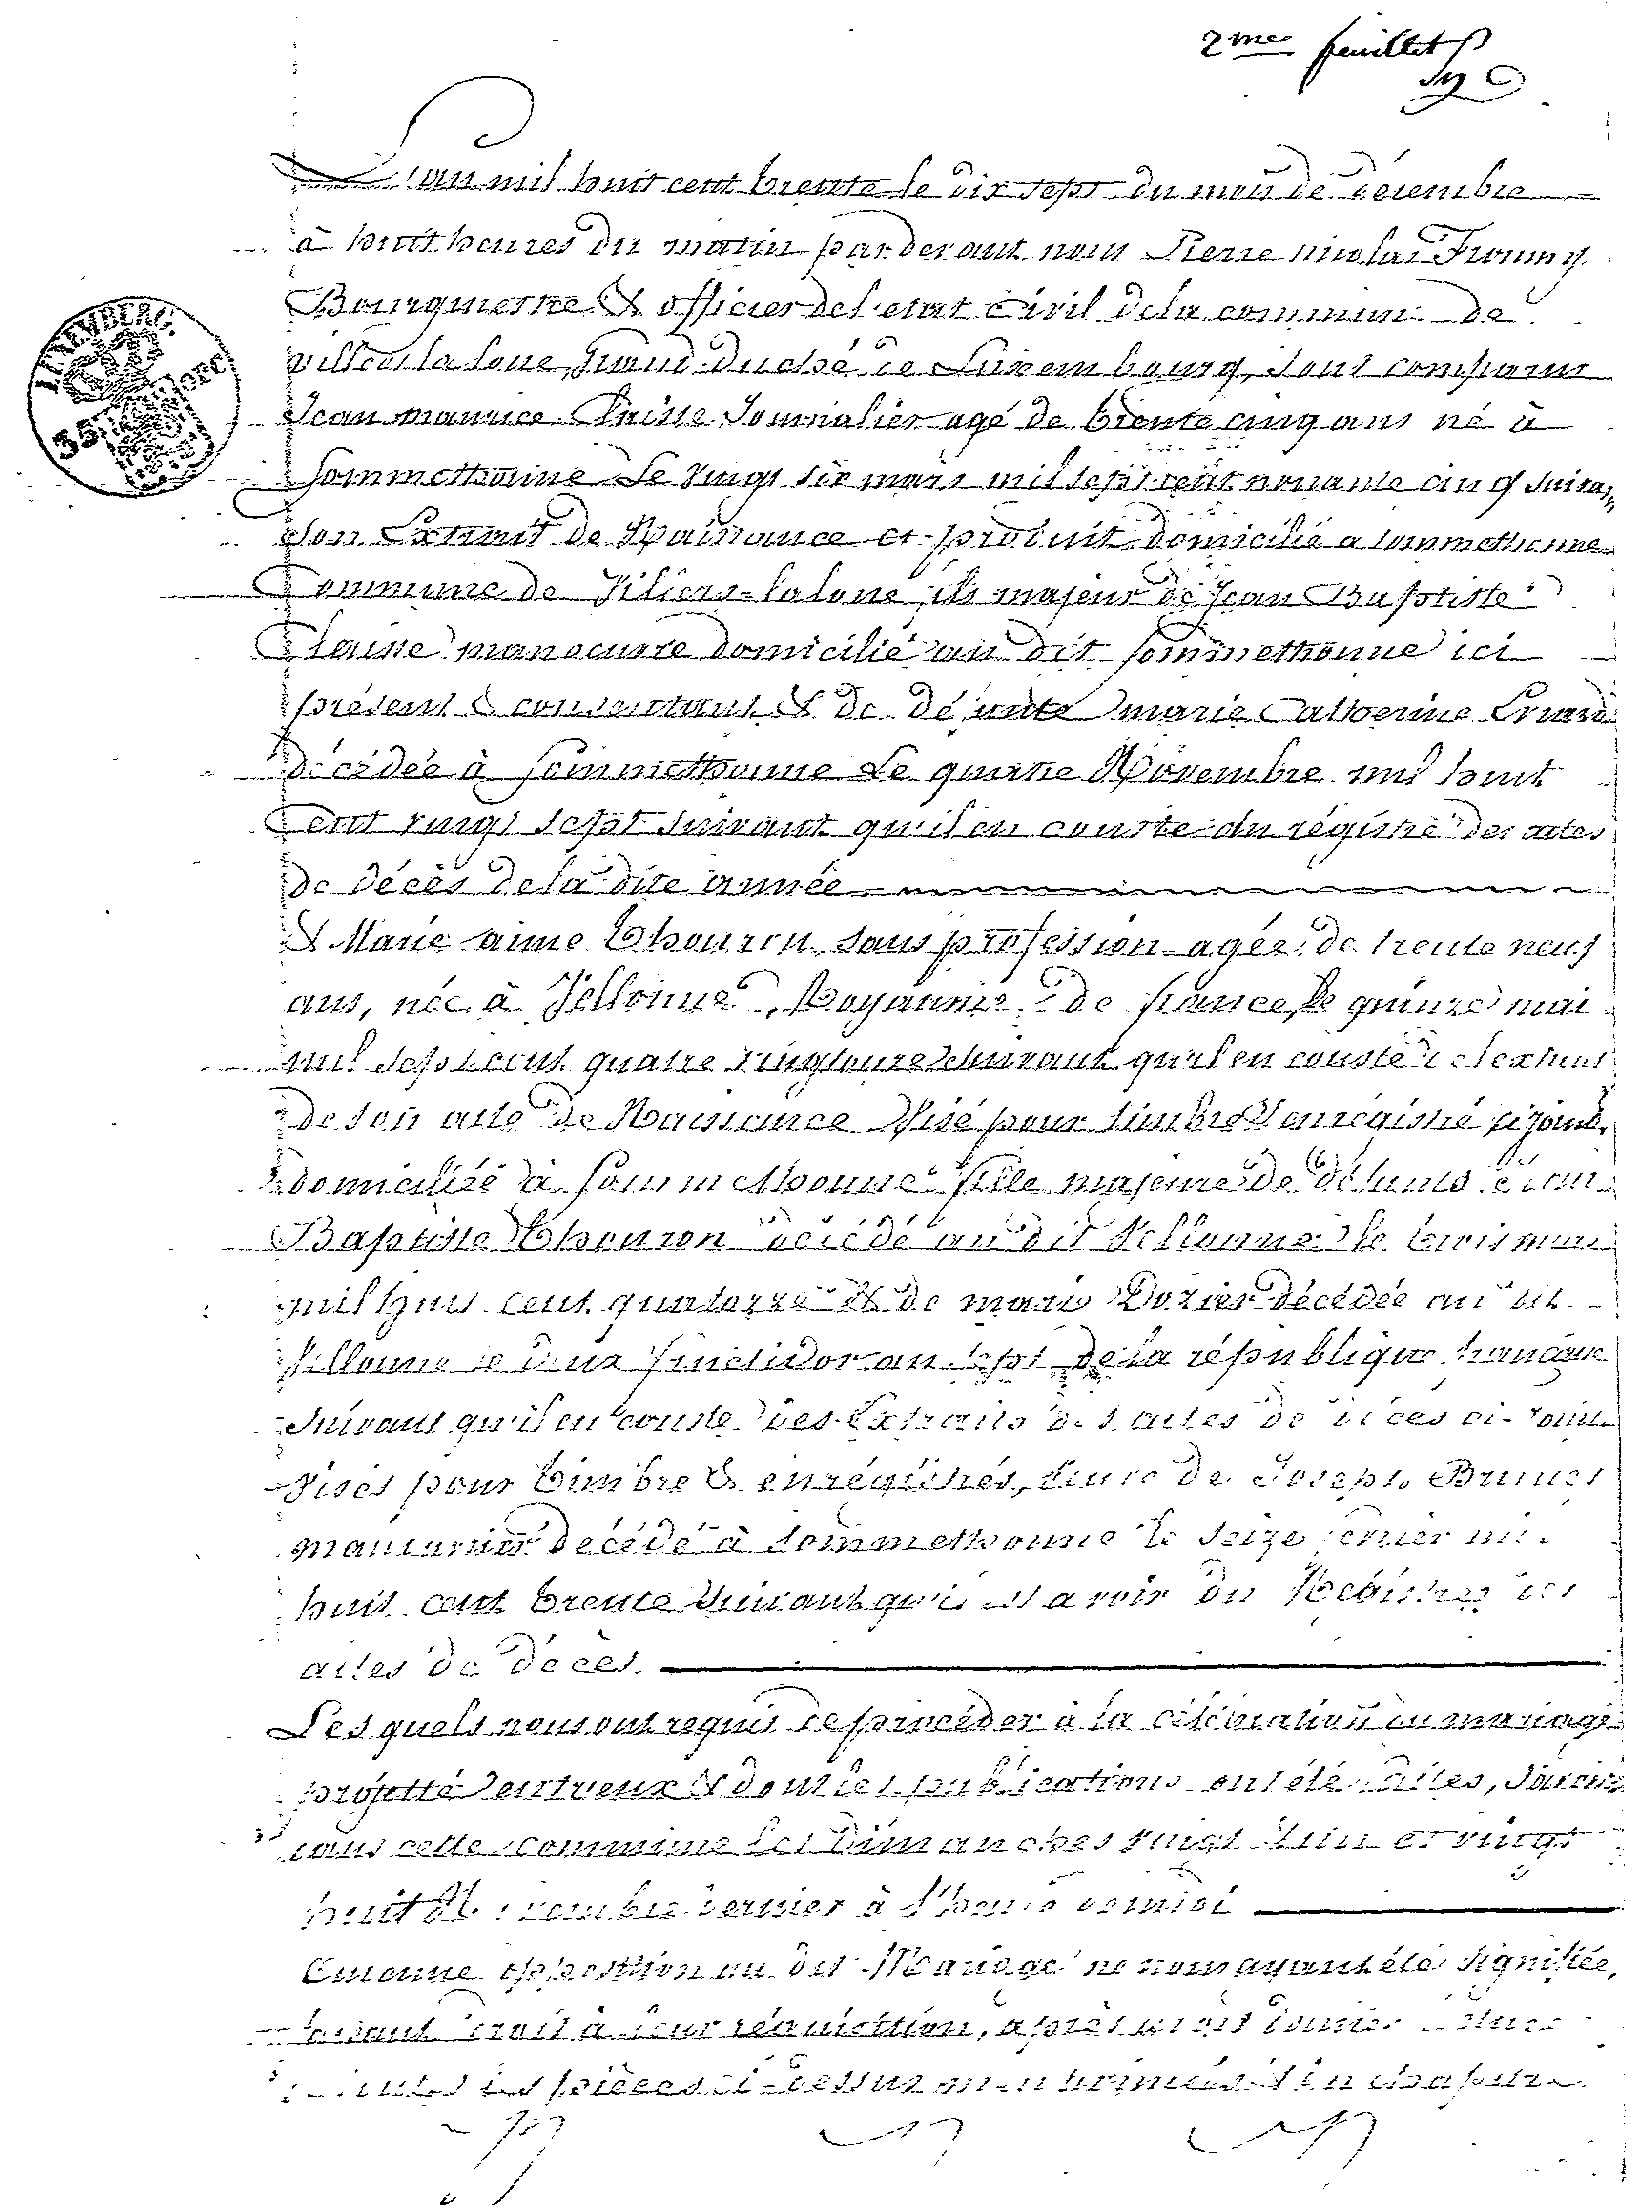 2me feuillet
L'an mil huit cent trente le dix sept du mois de décembre
à huit heures du matin par devant nous Pierre nicolas Fromm
Bourgmestre & officier de l'etat Civil de la commune de
villers la loue, grand-duché de Luxembourg, sont comparus
Jean maurice Clausse Journalier agé de trente cinq ans né à
Sommethonne Le Vingt six mars mil sept cent nonante cinq suivant
son Extrait de Naissance et produit domicilié a sommethonne
Commune de Villers-la loue fils majeur de Jean Baptiste
Clausse manoeuvre domicilié au dit sommethonne ici
présent & consentant & de défunte marie Catherine
décédée à Sommethonne Le quatre Novembre mil huit
Cent vingt sept suivant qu'il en conste du régistre des actes
de décès de la dite année
& Marie anne Thouron sans profession agée de trente neuf
ans, née à Vellonne, Royaume de france, le quinze mai
mil sept cent quatre vingt onze suivant qu'il en conste de l'extrait
de son acte de Naissance Visé pour timbre & enregistré ci joint,
domiciliée à Sommethonne fille majeure de défunts Jean
Baptiste Thouron décédé au dit Vellonne le trois mars
mil huit cent quatorze & de marie Dozier décédée au dit
Vellonne le deux fructidor an sept de la république française
suivant qu'il en conste des Extraits des actes de décès ci-joints
visés pour timbre & enrégistrés, veuve de Joseph Brunet
manoeuvre décédé à Sommethonne le seize février mil
huit cent trente suivant qu'il est a voir du Régistre des
actes de décès.
Les quels nous ont requis de procéder à la célébration du mariage
projetté entr'eux & dont les publications ont été faites, savoir
dans cette commune les Dimanches vingt un et vingt
huit Novembre dernier à l'heure de midi
Aucune opposition au dit Mariage ne nous ayant été signifiée,
faisant droit à leur réquisition, après avoir donné lecture
de toutes les pièces ci-dessus mentionnées & du chapitre
LUXEMBERG.
35